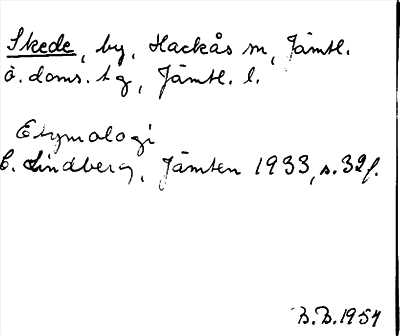 Skede, by, Hackås sn, Jämtl.
ö. doms. tg, Jämtl. l.
Etymologi
E. Lindberg, Jämten 1933, s. 32 f.
B.B. 1954